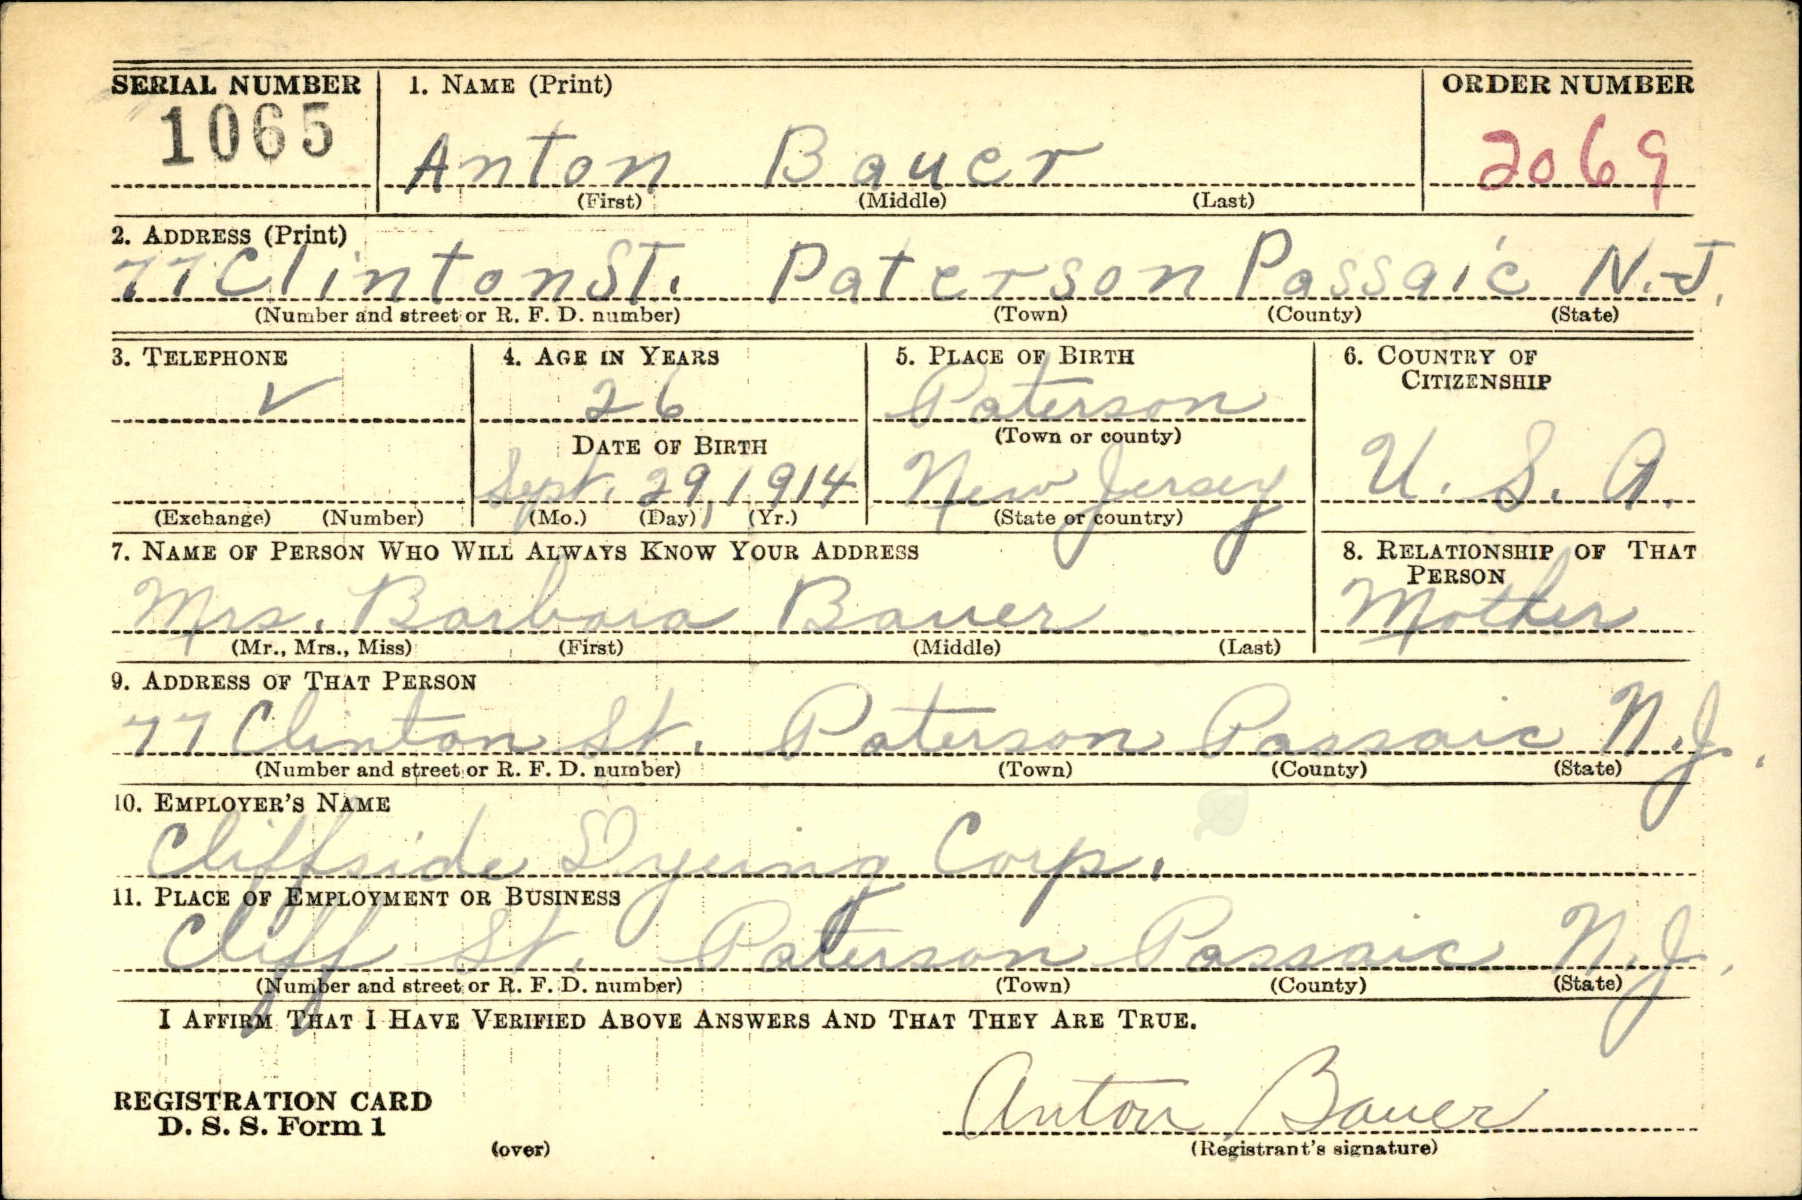 SERIAL NUMBER 1. NAME (Print) ORDER NUMBER
1065 Anton Bauer 2069
(First) (Middle) (Last)
2. ADDRESS (Print)
77 Clinton ST. Paterson Passaic N.J.
(Number and street or R. F. D. number) (Town) (County) (State)
3. TELEPHONE 4. AGE IN YEARS 5. PLACE OF BIRTH 6. COUNTRY OF
CITIZENSHIP
✓ 26 Paterson
DATE OF BIRTH (Town or county)
Sept. 29, 1914 New Jersey U. S. A.
(Exchange) (Number) (Mo.) (Day) (Yr.) (State or country)
7. NAME OF PERSON WHO WILL ALWAYS KNOW YOUR ADDRESS 8. RELATIONSHIP OF THAT
PERSON
Mrs. Barbara Bauer Mother
(Mr., Mrs., Miss) (First) (Middle) (Last)
9. ADDRESS OF THAT PERSON
77 Clinton St. Paterson Passaic N.J.
(Number and street or R. F. D. number) (Town) (County) (State)
10. EMPLOYER'S NAME
Cliffside Dyeing Corp.
11. PLACE OF EMPLOYMENT OR BUSINESS
Cliff St. Paterson Passaic N.J.
(Number and street or R. F. D. number) (Town) (County) (State)
I AFFIRM THAT I HAVE VERIFIED ABOVE ANSWERS AND THAT THEY ARE TRUE.
REGISTRATION CARD
D. S. S. Form 1 Anton Bauer
(over) (Registrant's signature)